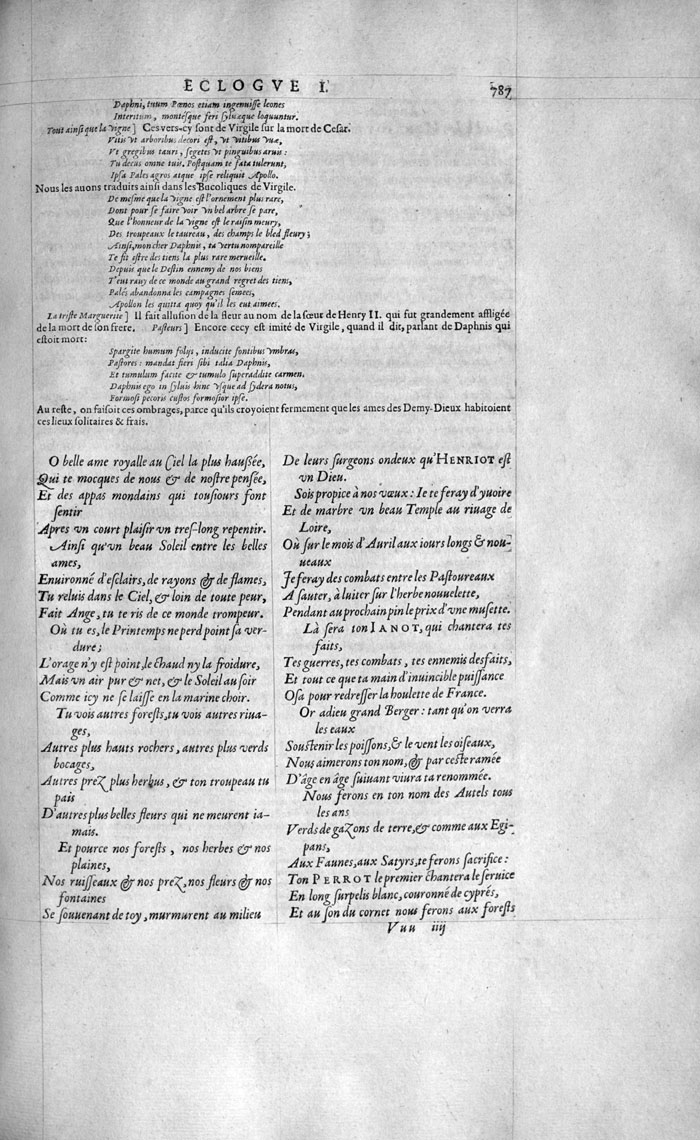 ECLOGVE I.
787
Daphni, tuum Pœnos etiam ingenuisse leones
Interitum, montesque feri syluæque loquuntur.
Tout ainsi que la vigne] Ces vers-cy sont de Virgile sur la mort de Cesar.
Vitis vt arboribus decori est, vt vitibus vuæ,
Vt gregibus tauri, segetes vt pinguibus aruis:
Tu decus omne tuis. Postquam te fata tulerunt,
Ipsa Pales agros atque ipse reliquit Apollo.
Nous les auons traduits ainsi dans les Bucoliques de Virgile.
De mesme que la vigne est l'ornement plus rare,
Dont pour se faire voir vn bel arbre se pare,
Que l'honneur de la vigne est le raisin meury,
Des troupeaux le taureau, des champs le bled fleury;
Ainsi, mon cher Daphnis, ta vertu nompareille
Te fit estre des tiens la plus rare merueille.
Depuis que le Destin ennemy de nos biens
T'eut rauy de ce monde au grand regret des tiens,
Palés abandonna les campagnes semées,
Apollon les quitta quoy qu'il les eut aimees.
La triste Marguerite] Il fait allusion de la fleur au nom de la sœur de Henry II. qui fut grandement affligée
de la mort de son frere. Pasteurs] Encore cecy est imité de Virgile, quand il dit, parlant de Daphnis qui
estoit mort:
Spargite humum foliis, inducite fontibus vmbras,
Pastores: mandat fieri sibi talia Daphnis,
Et tumulum facite & tumulo superaddite carmen.
Daphnis ego in syluis hinc vsque ad sydera notus,
Formosi pecoris custos formosior ipse.
Au reste, on faisoit ces ombrages, parce qu'ils croyoient fermement que les ames des Demy-Dieux habitoient
ces lieux solitaires & frais.
O belle ame royalle au Ciel la plus haussée,
Qui te mocques de nous & de nostre pensée,
Et des appas mondains qui tousiours font
sentir
Apres vn court plaisir vn tres-long repentir.
Ainsi qu'vn beau Soleil entre les belles
ames,
Enuironné d'esclairs, de rayons & de flames,
Tu reluis dans le Ciel, & loin de toute peur,
Fait Ange, tu te ris de ce monde trompeur.
Où tu es, le Printemps ne perd point sa ver-
dure;
L'orage n'y est point, le chaud ny la froidure,
Mais vn air pur & net, & le Soleil au soir
Comme icy ne se laisse en la marine choir.
Tu vois autres forests, tu vois autres riua-
ges,
Autres plus hauts rochers, autres plus verds
bocages,
Autres prez plus herbus, & ton troupeau tu
pais
D'autres plus belles fleurs qui ne meurent ia-
mais.
Et pource nos forests, nos herbes & nos
plaines,
Nos ruisseaux & nos prez, nos fleurs & nos
fontaines
Se souuenant de toy, murmurent au milieu
De leurs surgeons ondeux qu'HENRIOT est
vn Dieu.
Sois propice à nos vœux: Ie te feray d'yuoire
Et de marbre vn beau Temple au riuage de
Loire,
Où sur le mois d'Auril aux iours longs & nou-
ueaux
Ie feray des combats entre les Pastoureaux
A sauter, à luiter sur l'herbe nouuelette,
Pendant au prochain pin le prix d'vne musette.
Là sera ton IANOT, qui chantera tes
faits,
Tes guerres, tes combats, tes ennemis desfaits,
Et tout ce que ta main d'inuincible puissance
Osa pour redresser la houlette de France.
Or adieu grand Berger: tant qu'on verra
les eaux
Soustenir les poissons, & le vent les oiseaux,
Nous aimerons ton nom, & par ceste ramée
D'âge en âge suiuant viura ta renommée.
Nous ferons en ton nom des Autels tous
les ans
Verds de gazons de terre, & comme aux Egi-
pans,
Aux Faunes, aux Satyrs, te ferons sacrifice:
Ton PERROT le premier chantera le seruice
En long surpelis blanc, couronné de cyprés,
Et au son du cornet nous ferons aux forests
Vuu iiij